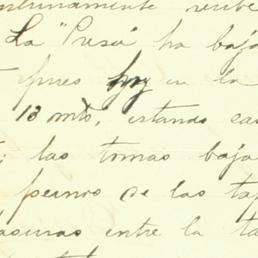 recibe
La "Presa" ha baja
pues hoy en la
13 mts, estando cas
las tomas baja
pernos de las ta
basuras entre la ta